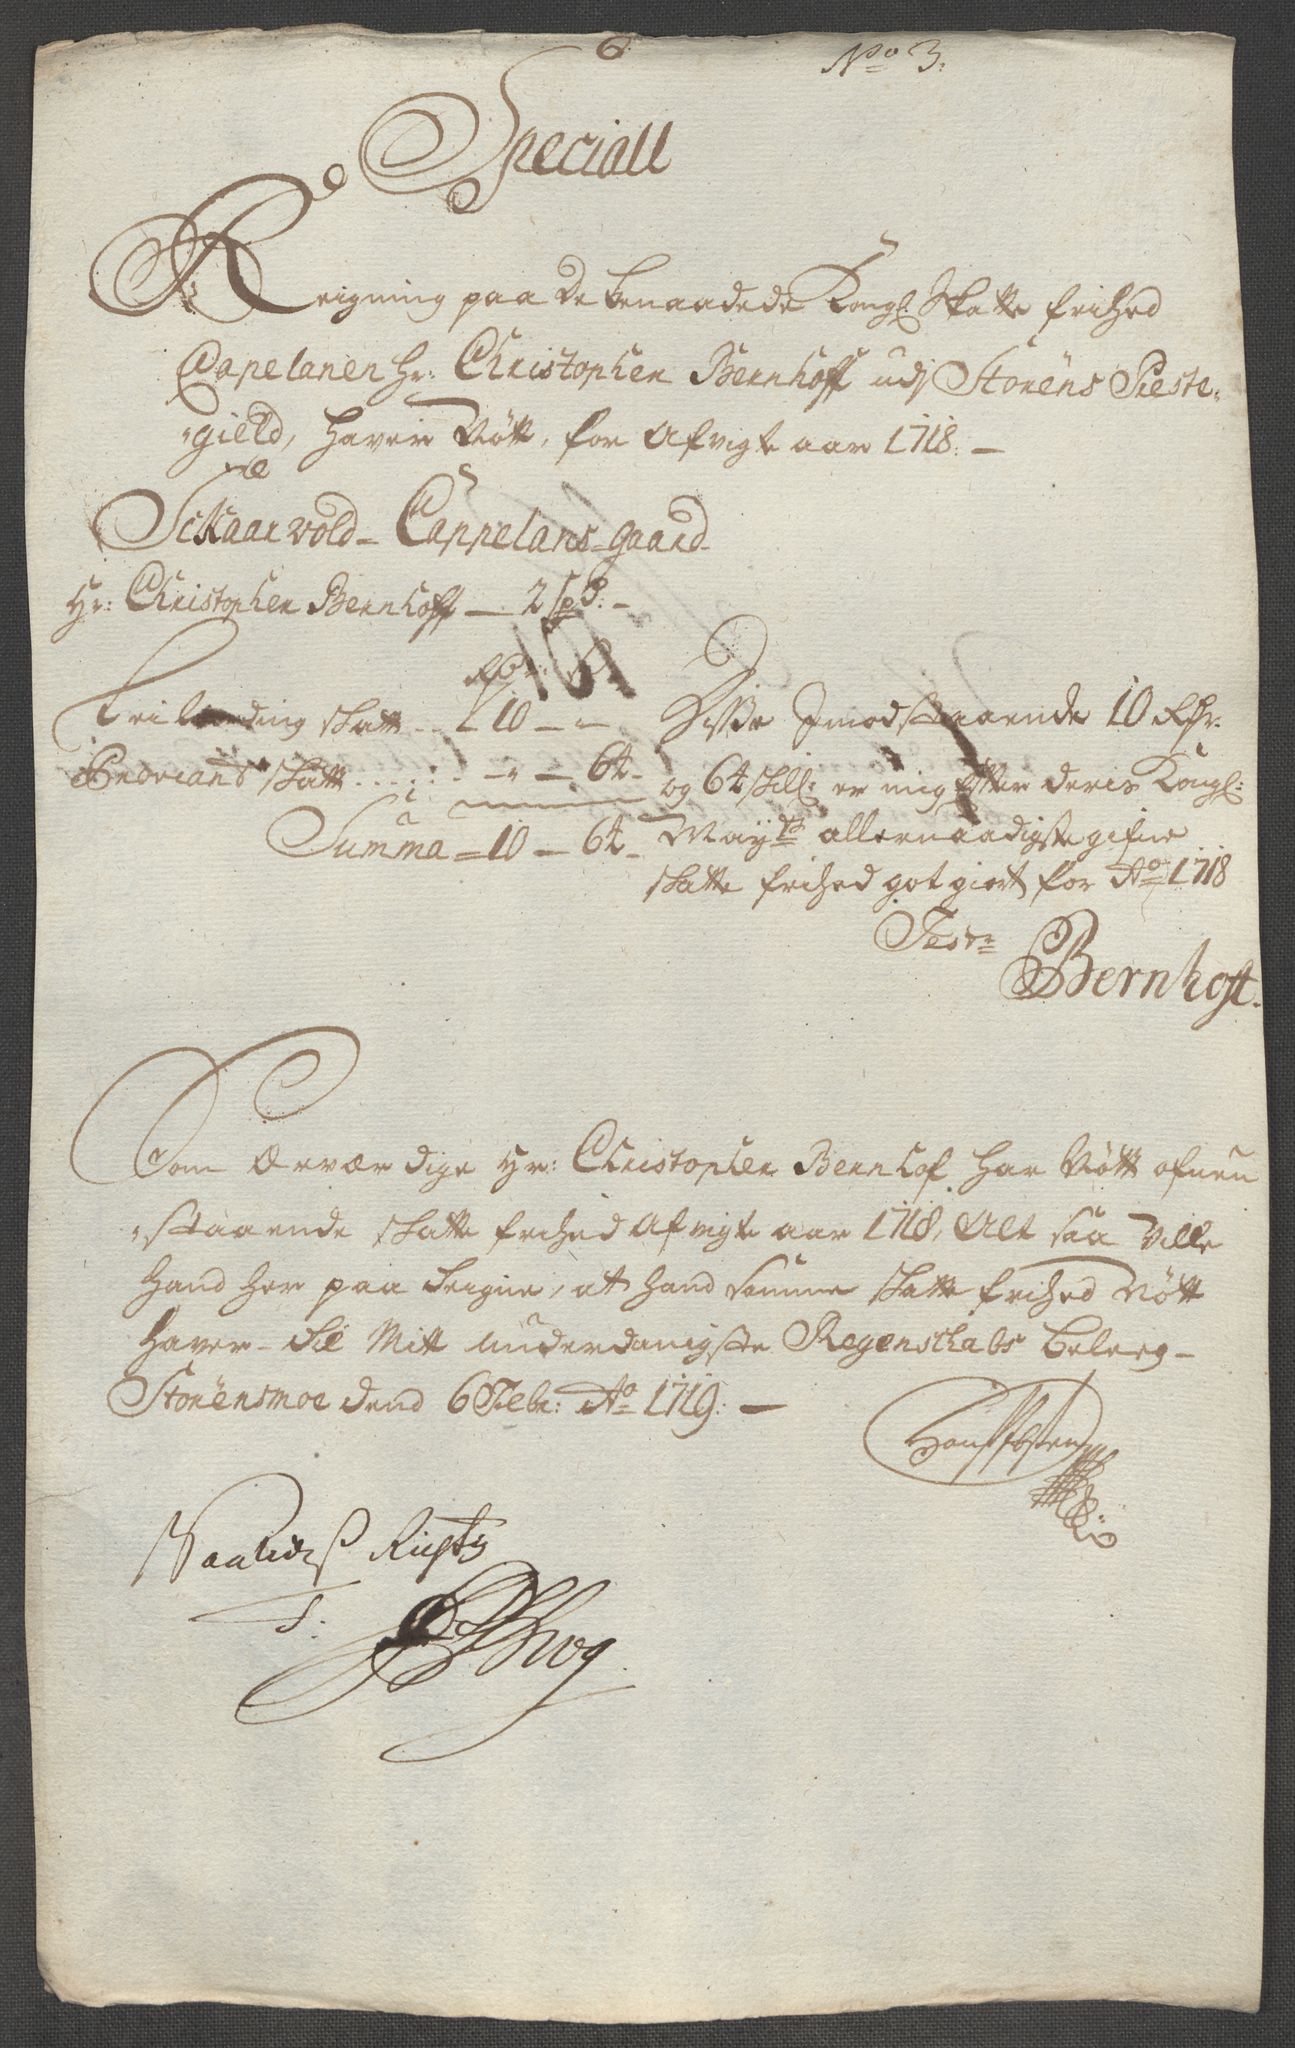 No 3.
Speciall
Reigning paa de benaadede Kongl. Skatte frihed
Capelanen Hr: Christopher Bernhoff udj Störens Preste-
gield, haver Nött, for Afvigte aar 1718. —
Schaarvold - Cappelans gaard
Hr: Christopher Bernhoff — 2 sp
skatt — 10 — „
skatt — „ — 64 —
Summa — 10 — 64 —
Disse Jmodstaaende 10 Rdr.
og 64 skill: er mig efter deris Kongl:
Mayts allernaadigste gifne
skatte frihed got giort for Ao 1718
Bernhoft.
Som Ærværdige Hr: Christopher Bernhof har Nött ofven
staaende skatte frihed Afvigte aar 1718, Alt saa Ville
hand her paa teigne, at hand samme skatte frihed Nött
haver - til Mitt underdanigste Regenskabs beleeg -
Störensmoe dend 6 Febr: Ao 1719. —